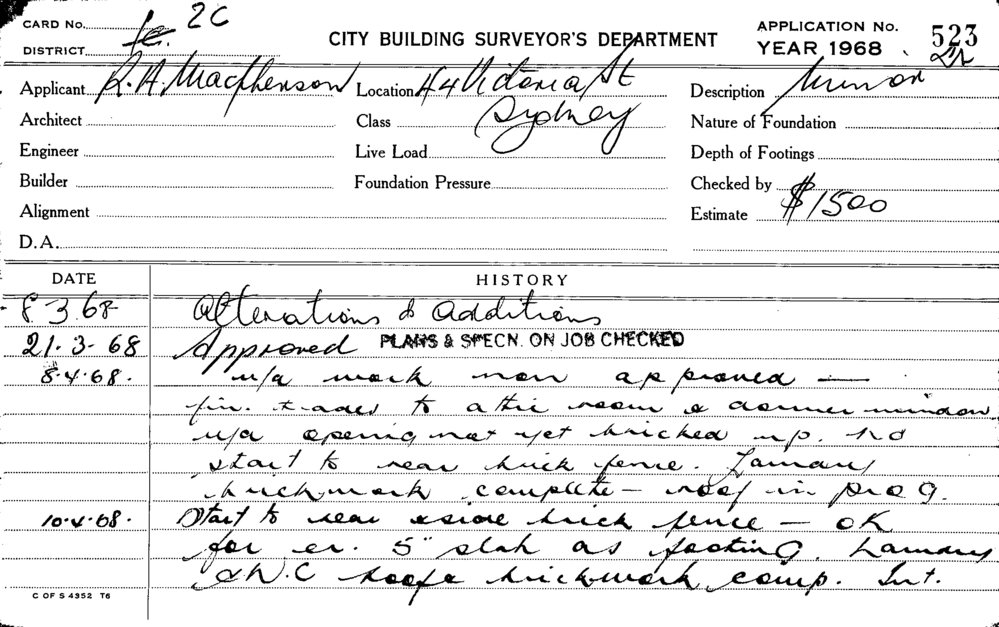 CARD No. 2C
DISTRICT
CITY BUILDING SURVEYOR'S DEPARTMENT
APPLICATION No. 523
YEAR 1968
Applicant R.A. Macpherson
Location 44 Victoria St
Description Minor
Architect
Class Sydney
Nature of Foundation
Engineer
Live Load
Depth of Footings
Builder
Foundation Pressure
Checked by
Alignment
Estimate $1500
D.A.
DATE HISTORY
8 3 68 Alterations & additions
21-3-68 Approved PLANS & SPECN. ON JOB CHECKED
8.4.68. u/a work now approved —
fin. trades to attic room & dormer window.
u/a opening not yet bricked up. No
start to rear brick fence. Laundry
brickwork complete – roof in prog.
10.4.68. Start to rear & side brick fence – OK
for 5" slab as footing. Laundry
& W.C roof & brickwork comp. Int.
C OF S 4352 T6